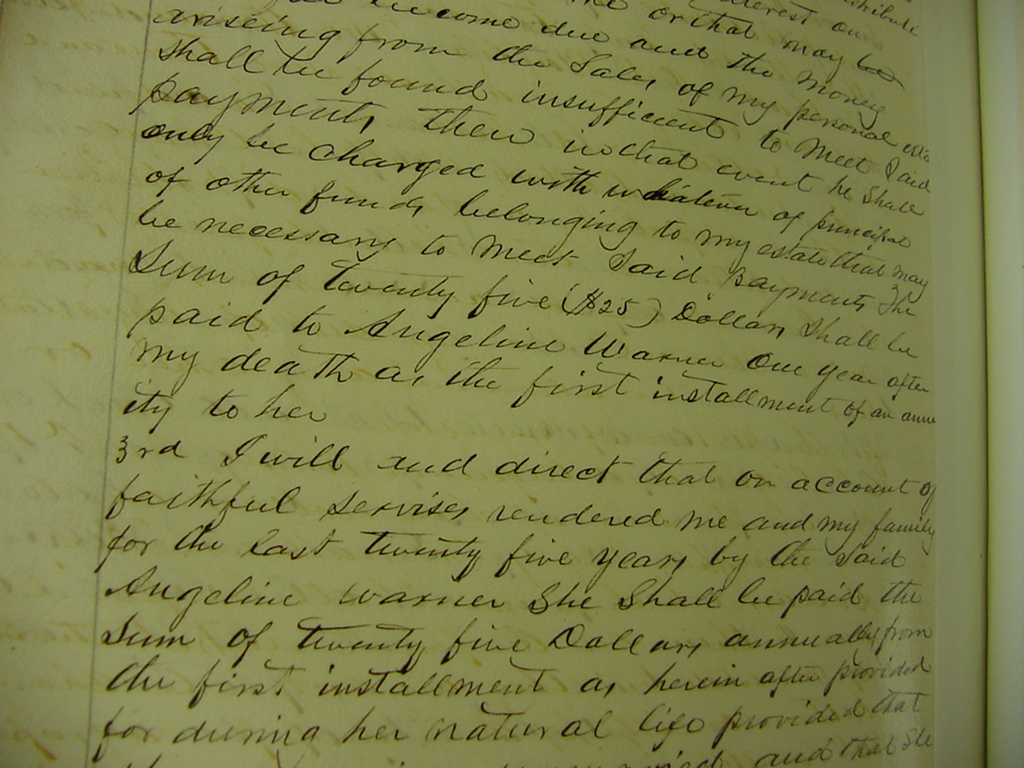 interest on
become due and the or that may be
ariseing from the Sales of my personal esta
shall be found insufficient to meet Said
payments then in that event he Shall
only be charged with whatever of principal
of other funds belonging to my estate that may
be necessary to meet Said payments The
Sum of twenty five ($25) Dollars Shall be
paid to Angeline Warner One year after
my death as the first installment of an annu
ity to her
3rd I will and direct that on account of
faithful servises rendered me and my family
for the last twenty five years by the Said
Angeline Warner She Shall be paid the
Sum of twenty five Dollars annually from
the first installment as herein after provided
for during her natural life provided that
and that She